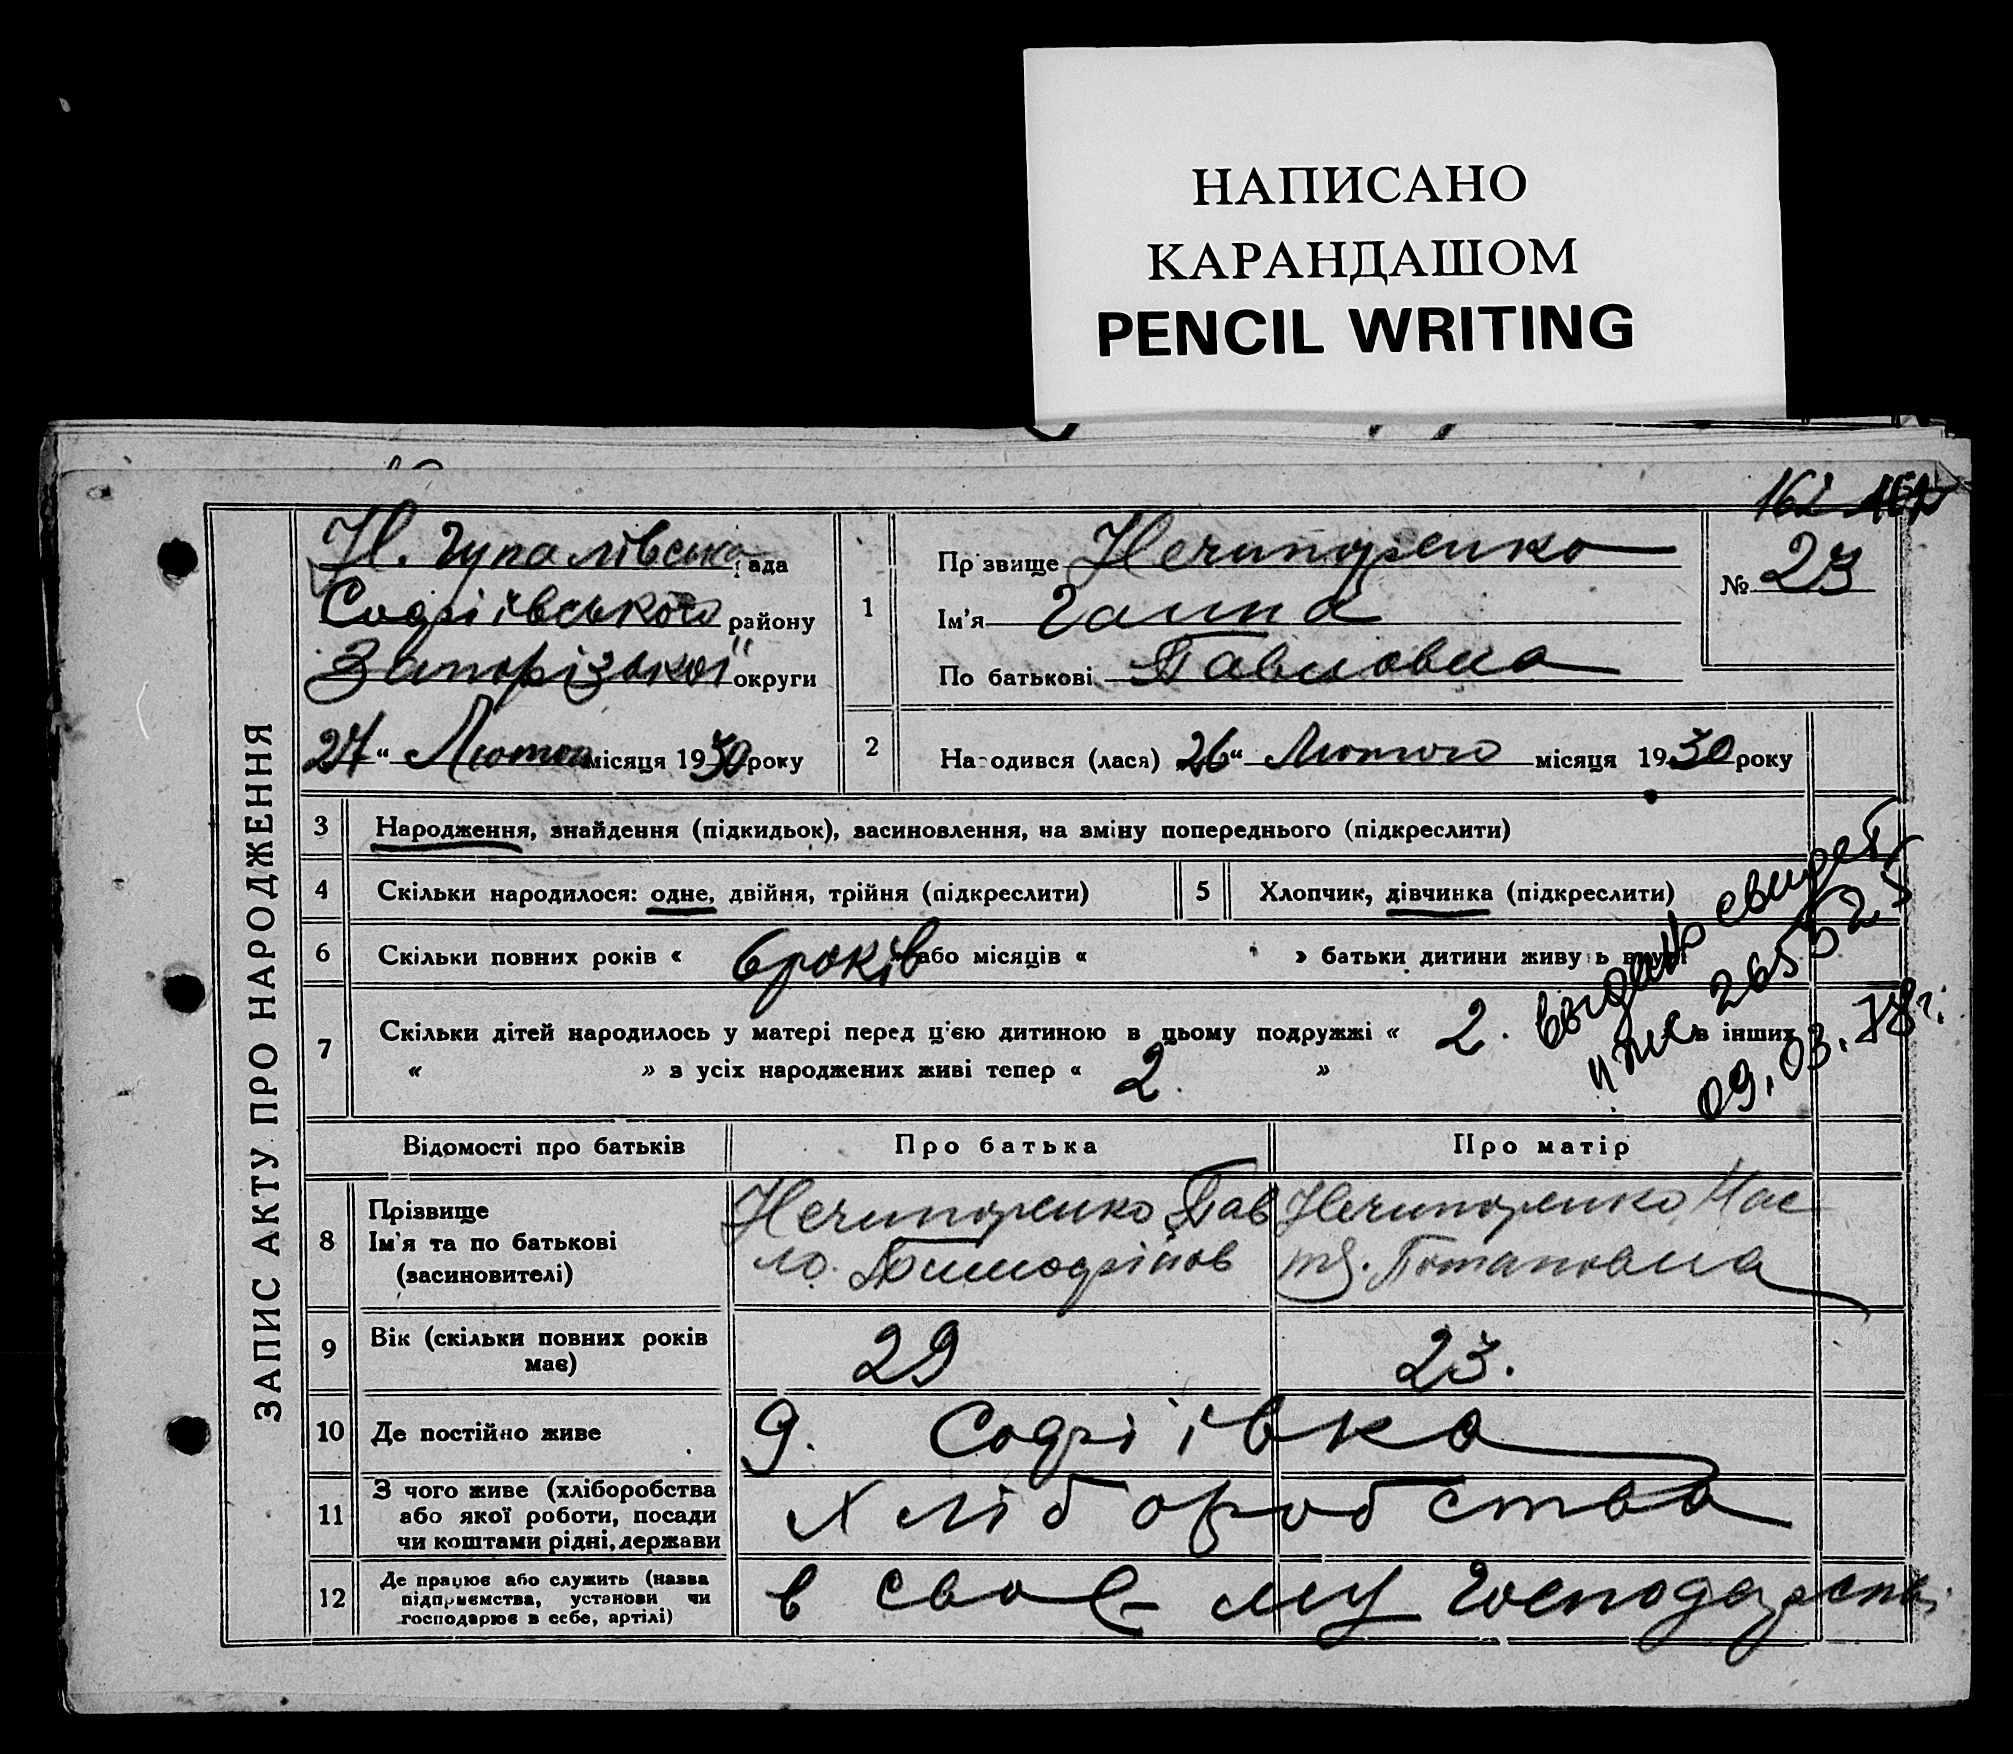 НАПИСАНО
КАРАНДАШОМ
PENCIL WRITING
ЗАПИС АКТУ ПРО НАРОДЖЕННЯ
162
Н. Гупалівська рада
Софіївського району
Запорізької округи
27 “ Лютого місяця 1930 року
1
Прізвище Нечипоренко
Ім'я Ганна
По батькові Павловна
№ 23
2 Народився (лася) 26 “ Лютого місяця 1930 року
3 Народження, знайдення (підкидьок), засиновлення, на зміну попереднього (підкреслити)
4 Скільки народилося: одне, двійня, трійня (підкреслити)
5 Хлопчик, дівчинка (підкреслити)
6 Скільки повних років « 6 років або місяців « » батьки дитини живуть вкупі
7 Скільки дітей народилось у матері перед ц'єю дитиною в цьому подружжі « 2. в інших
« » з усіх народжених живі тепер « 2. »
выдано свидет
09.03.78г.
Відомості про батьків Про батька Про матір
8 Прізвище
Ім'я та по батькові
(засиновителі)
Нечипоренко Пав
ло.
Нечипоренко Нас
тя. Потаповна
9 Вік (скільки повних років
має)
29 23.
10 Де постійно живе
9. Софіївка
11 З чого живе (хліборобства
або якої роботи, посади
чи коштами рідні, держави
Хліборобства
12 Де працює або служить (назва
підприємства, установи чи
господарює в себе, артілі)
в своєму господарстві